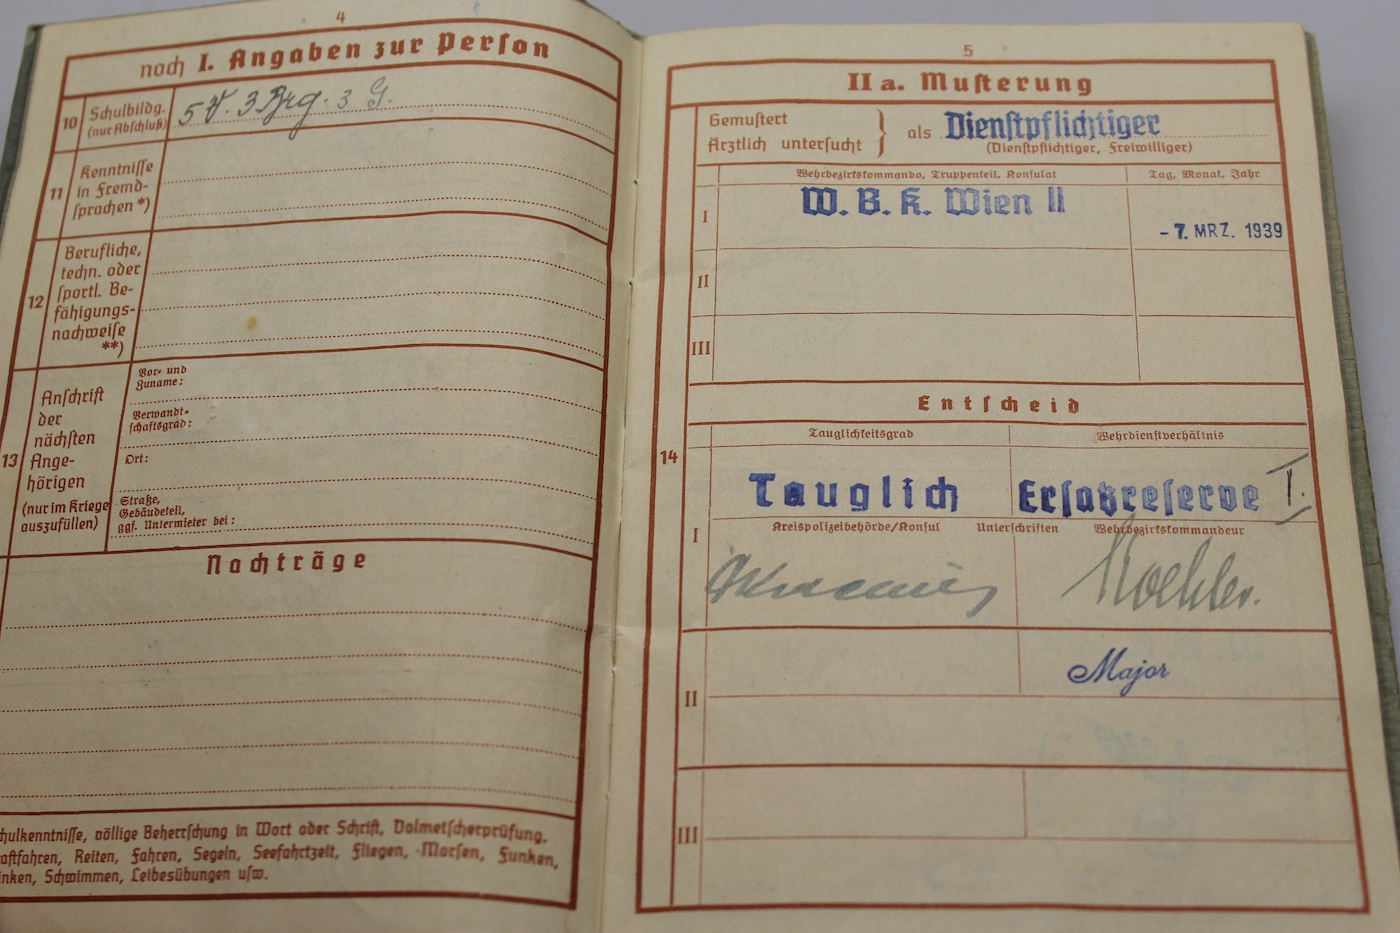 4
noch I. Angaben zur Person
10 Schulbildg.
(nur Abschluß)
5 V. 3 Brg. 3 G.
11 Kenntnisse
in Fremd-
sprachen *)
12 Berufliche,
techn. oder
sportl. Be-
fähigungs-
nachweise
**)
13 Anschrift
der
nächsten
Ange-
hörigen
(nur im Kriege
auszufüllen)
Vor- und
Zuname:
Verwandt-
schaftsgrad:
Ort:
Straße,
Gebäudeteil,
ggf. Untermieter bei:
Nachträge
hulkenntnisse, völlige Beherrschung in Wort oder Schrift, Dolmetscherprüfung.
aftfahren, Reiten, Fahren, Segeln, Seefahrtzeit, Fliegen, Morsen, Funken,
inken, Schwimmen, Leibesübungen usw.
5
II a. Musterung
Gemustert
Ärztlich untersucht } als Dienstpflichtiger
(Dienstpflichtiger, Freiwilliger)
Wehrbezirkskommando, Truppenteil, Konsulat Tag, Monat, Jahr
I W. B. K. Wien II
- 7. MRZ. 1939
II
III
Entscheid
14 Tauglichkeitsgrad Wehrdienstverhältnis
Tauglich Ersatzreserve I.
I Kreispolizeibehörde/Konsul Unterschriften Wehrbezirkskommandeur
Koehler.
Major
II
III